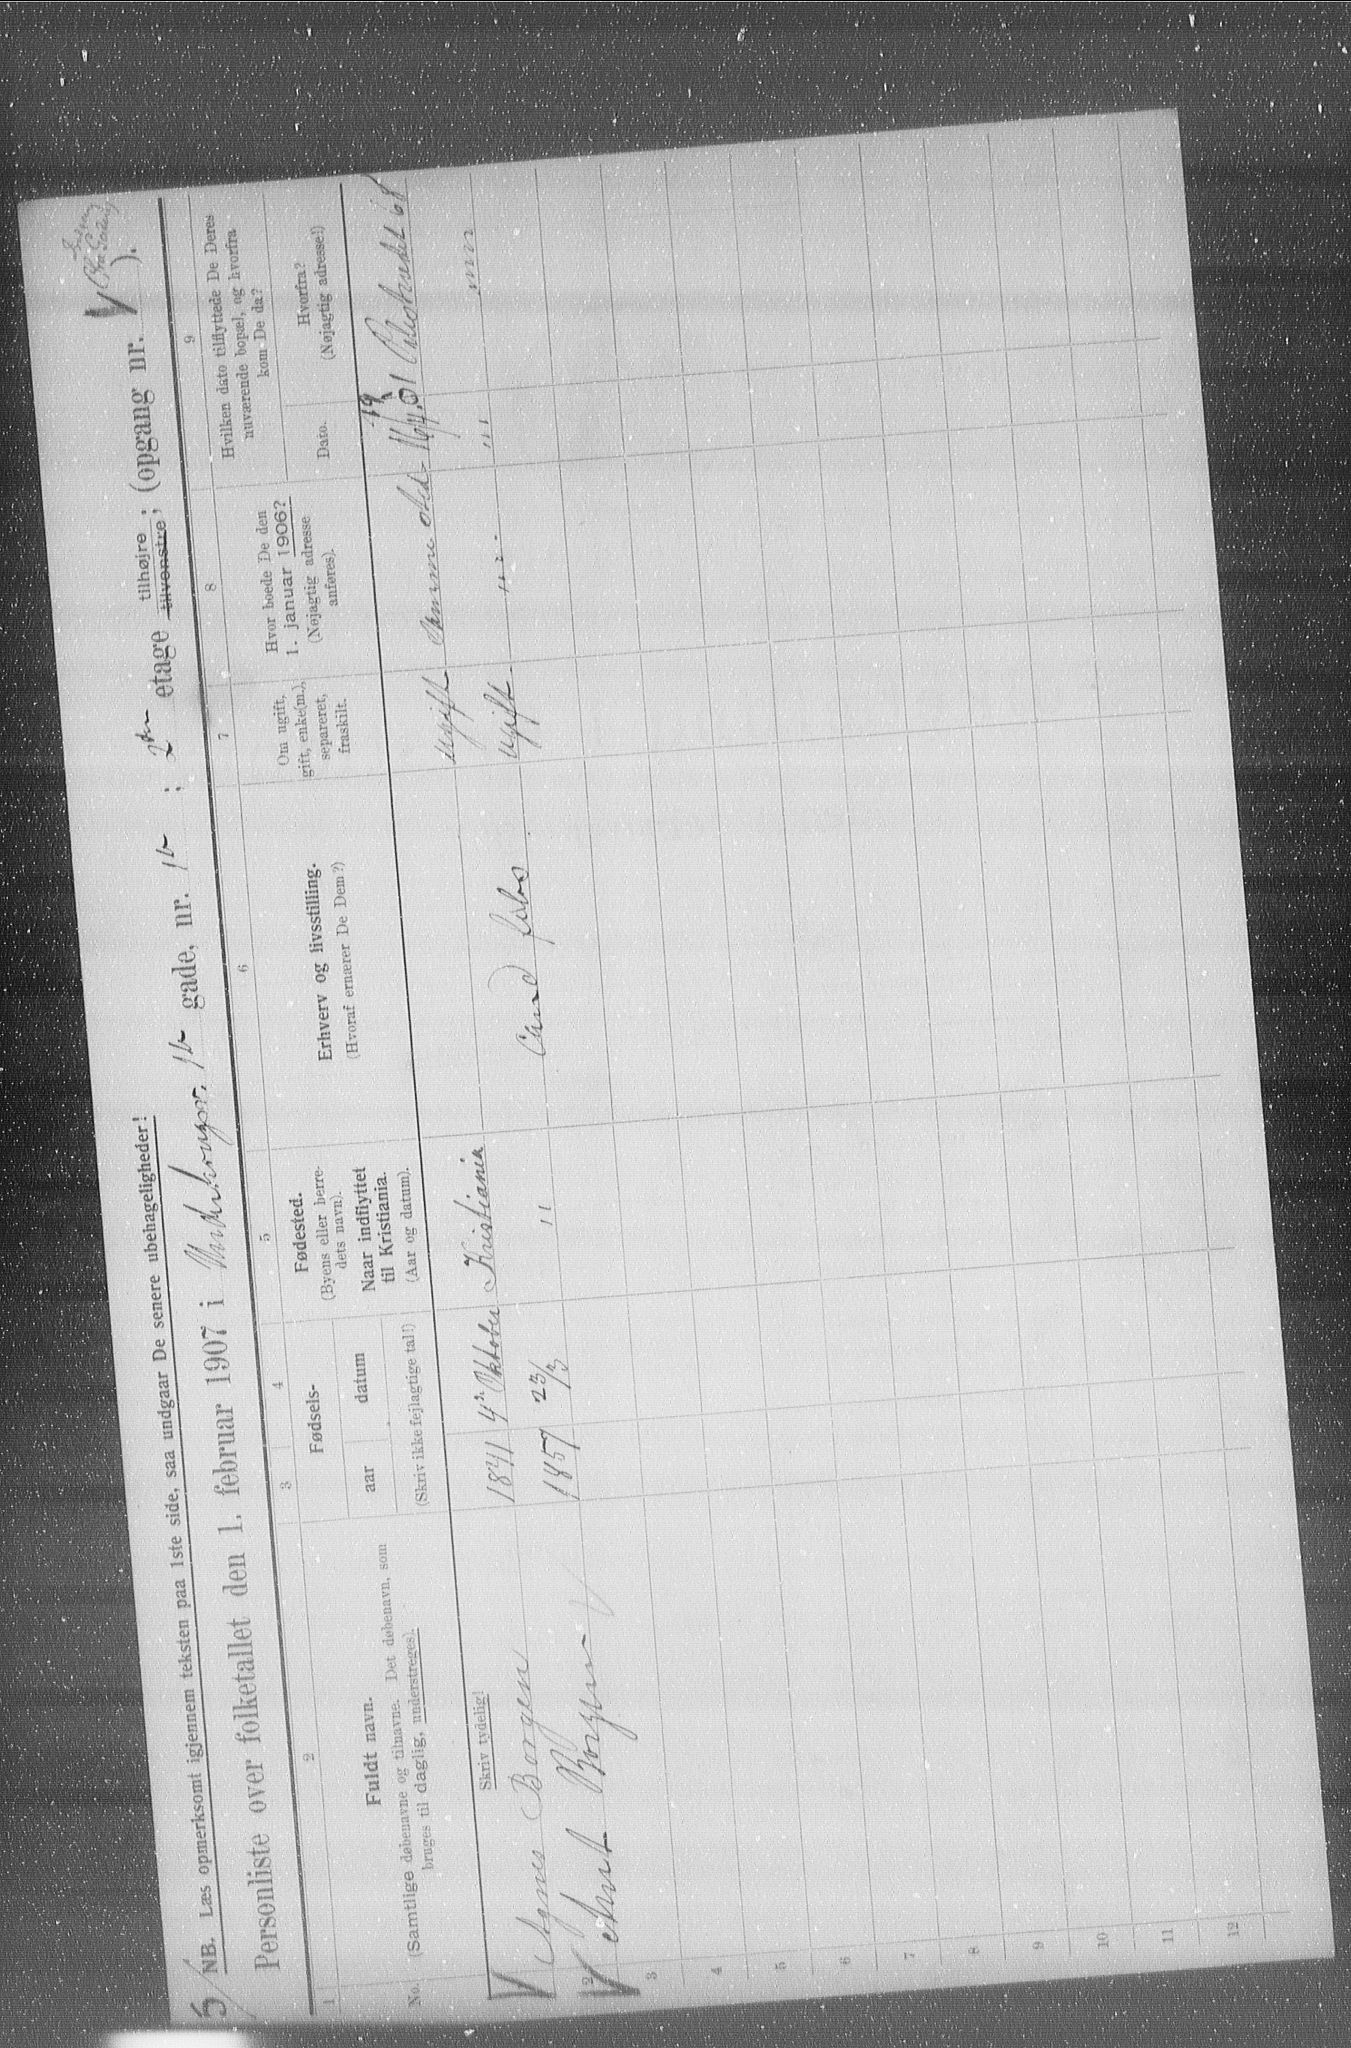 5/
NB. Læs opmerksomt igjennem teksten paa 1ste side, saa undgaar De senere ubehageligheder!
Personliste over folketallet den 1. februar 1907 i 1b gade, nr. 1b ; 2den etage tilhøjre ; tilvenstre ; (opgang nr. ).
1 2 3 4 5 6 7 8 9
No.
Fuldt navn.
(Samtlige døbenavne og tilnavne. Det døbenavn, som
bruges til daglig, understreges).
Fødsels-
aar datum
(Skriv ikke fejlagtige tal!)
Fødested.
(Byens eller herre-
dets navn).
Naar indflyttet
til Kristiania.
(Aar og datum).
Erhverv og livsstilling.
(Hvoraf ernærer De Dem?)
Om ugift,
gift, enke(m.),
separeret,
fraskilt.
Hvor boede De den
1. januar 1906?
(Nøjagtig adresse
anføres).
Hvilken dato tilflyttede De Deres
nuværende bopæl, og hvorfra
kom De da?
Dato.
Hvorfra?
(Nøjagtig adresse!)
Skriv tydelig!
Agnes Borgen 1841 4de Oktober Kristiania ugift Samme sted 16/4.01 68
2 Borgen 1857 23/3 " Cand ugift " " " " "
3
4
5
6
7
8
9
10
11
12